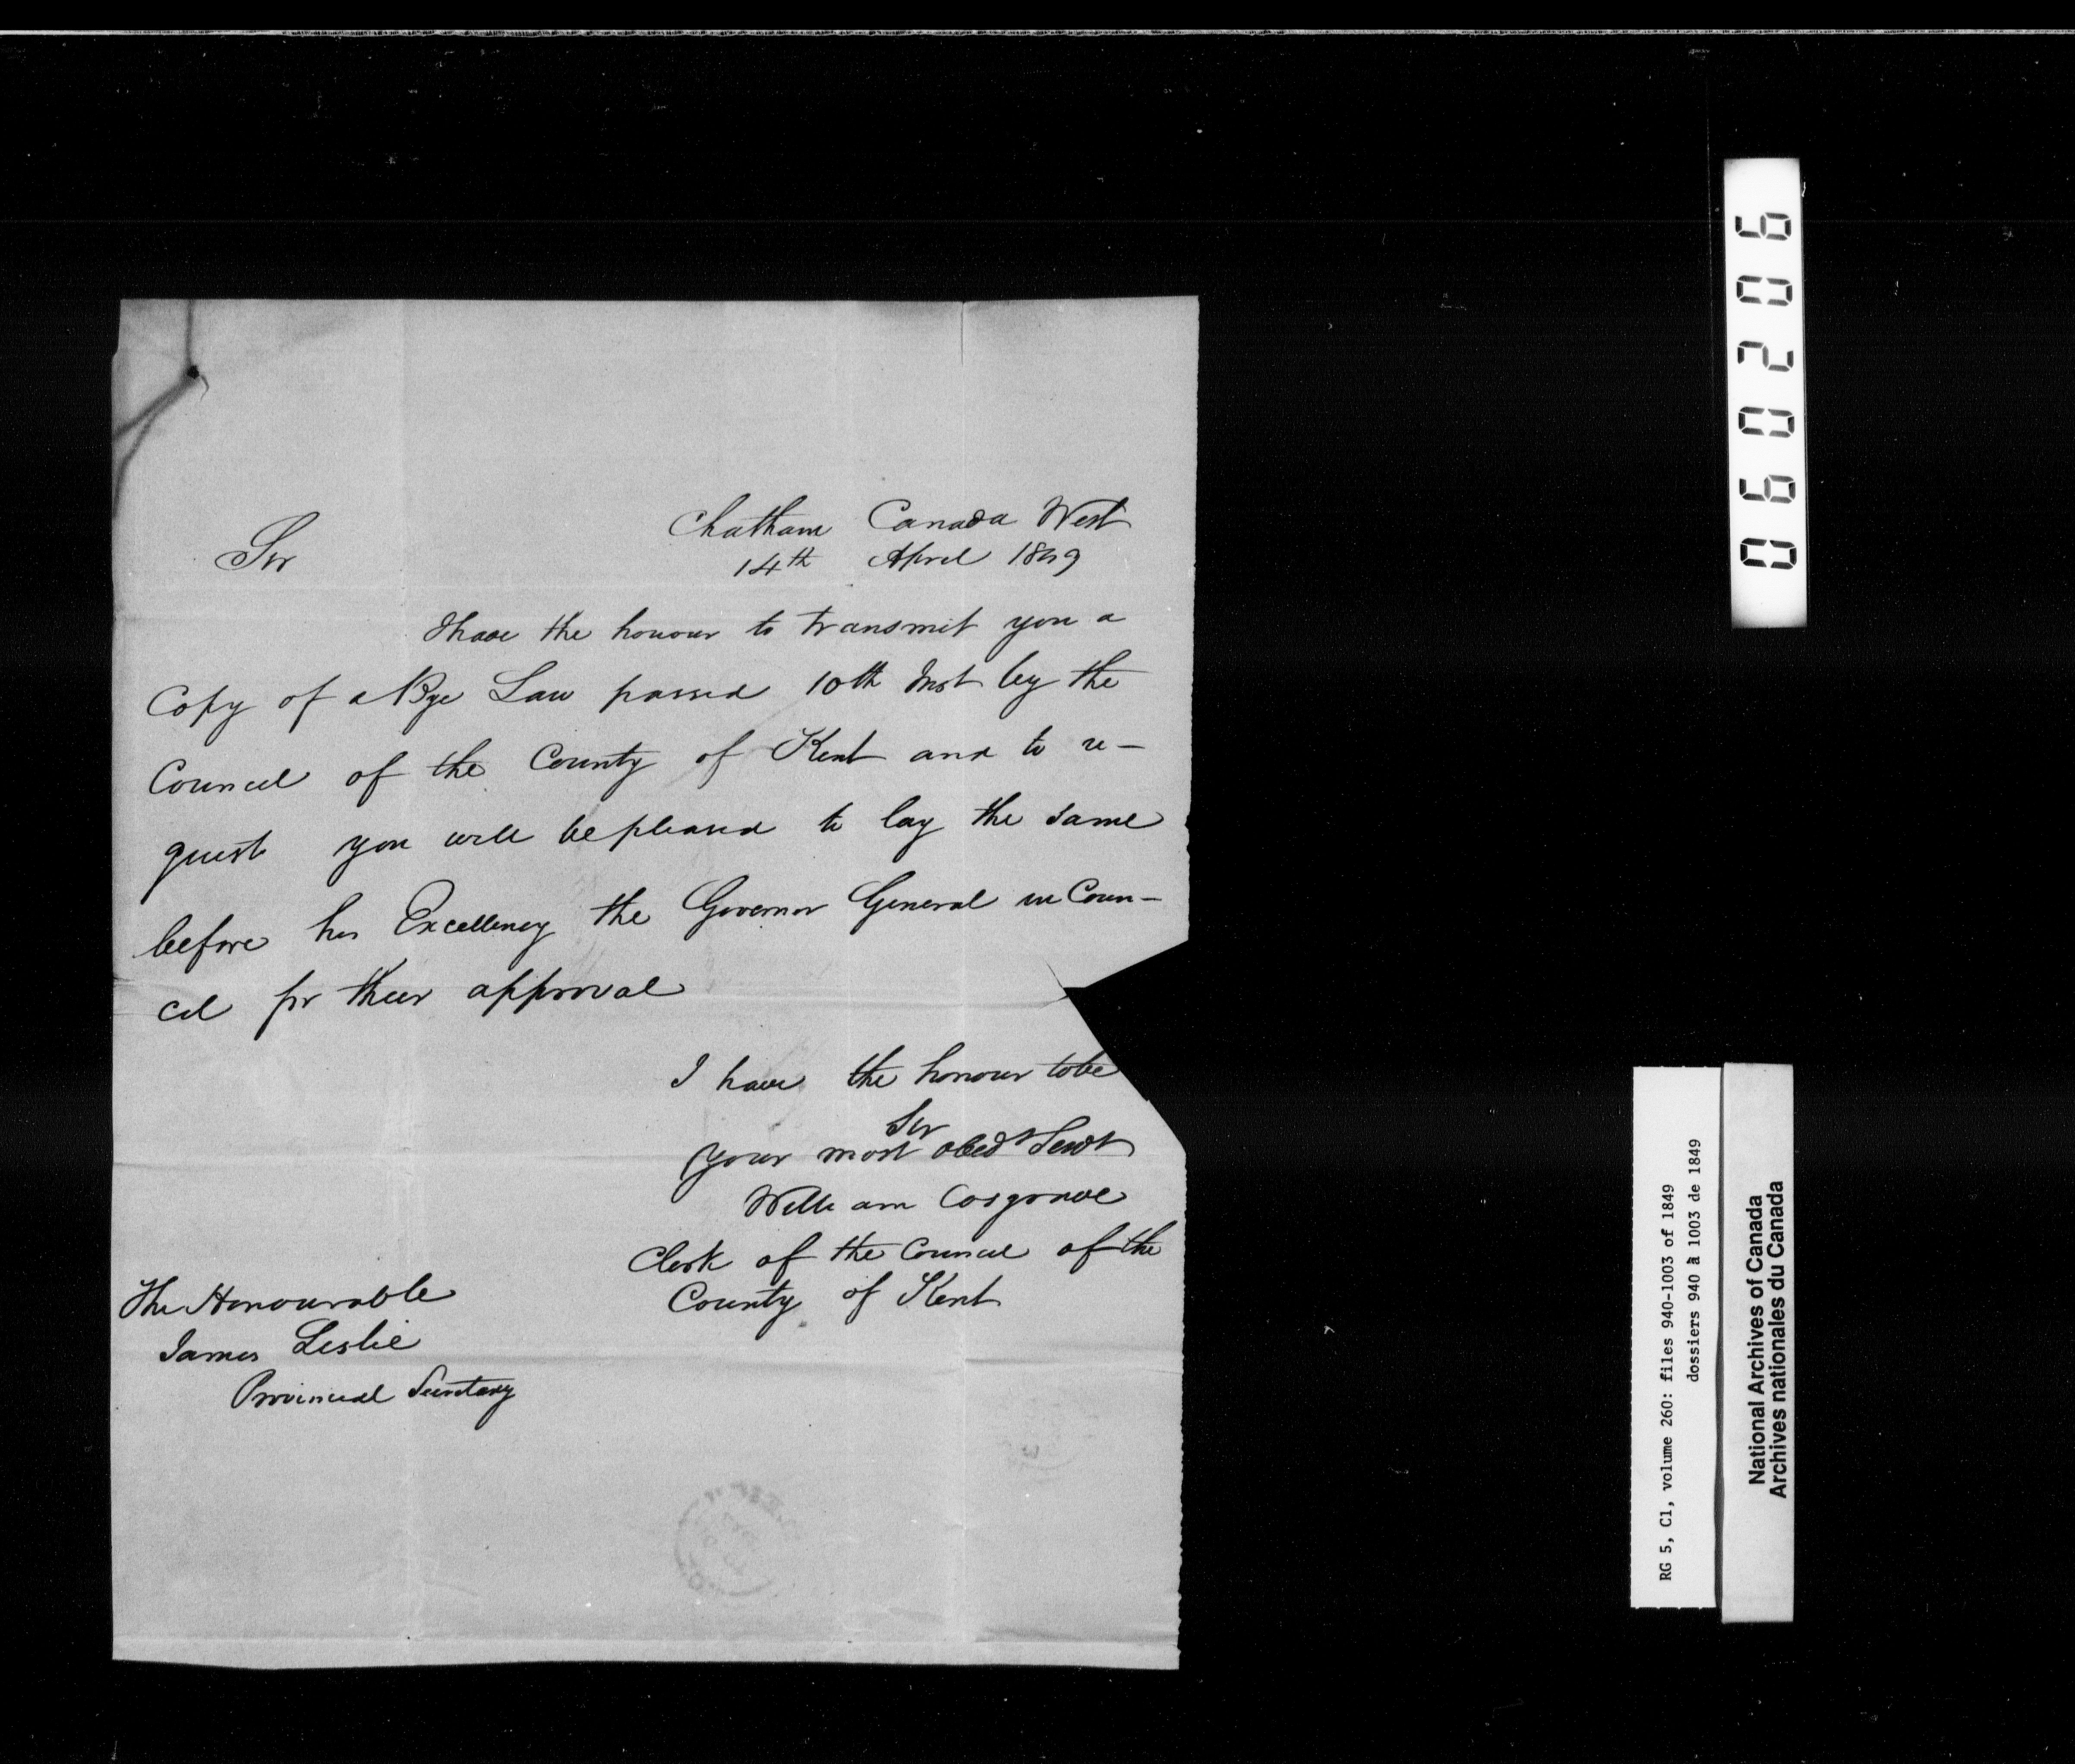 Chatham Canada West
Sir
14th April 1849
I have the honour to transmit you a
Copy of a Bye Law passed 10th Inst by the
Council of the County of Kent and to re-
quest you will be pleased to lay the same
before his Excellency the Governor General in Coun-
cil for their approval
I have the honour to be
Sir
Your most obedt Servt
William Cosgrave
Clerk of the Council of the
County of Kent
The Honourable
James Leslie
Provincial Secretary
060206
RG 5, C1, volume 260: files 940-1003 of 1849
dossiers 940 à 1003 de 1849
National Archives of Canada
Archives nationales du Canada